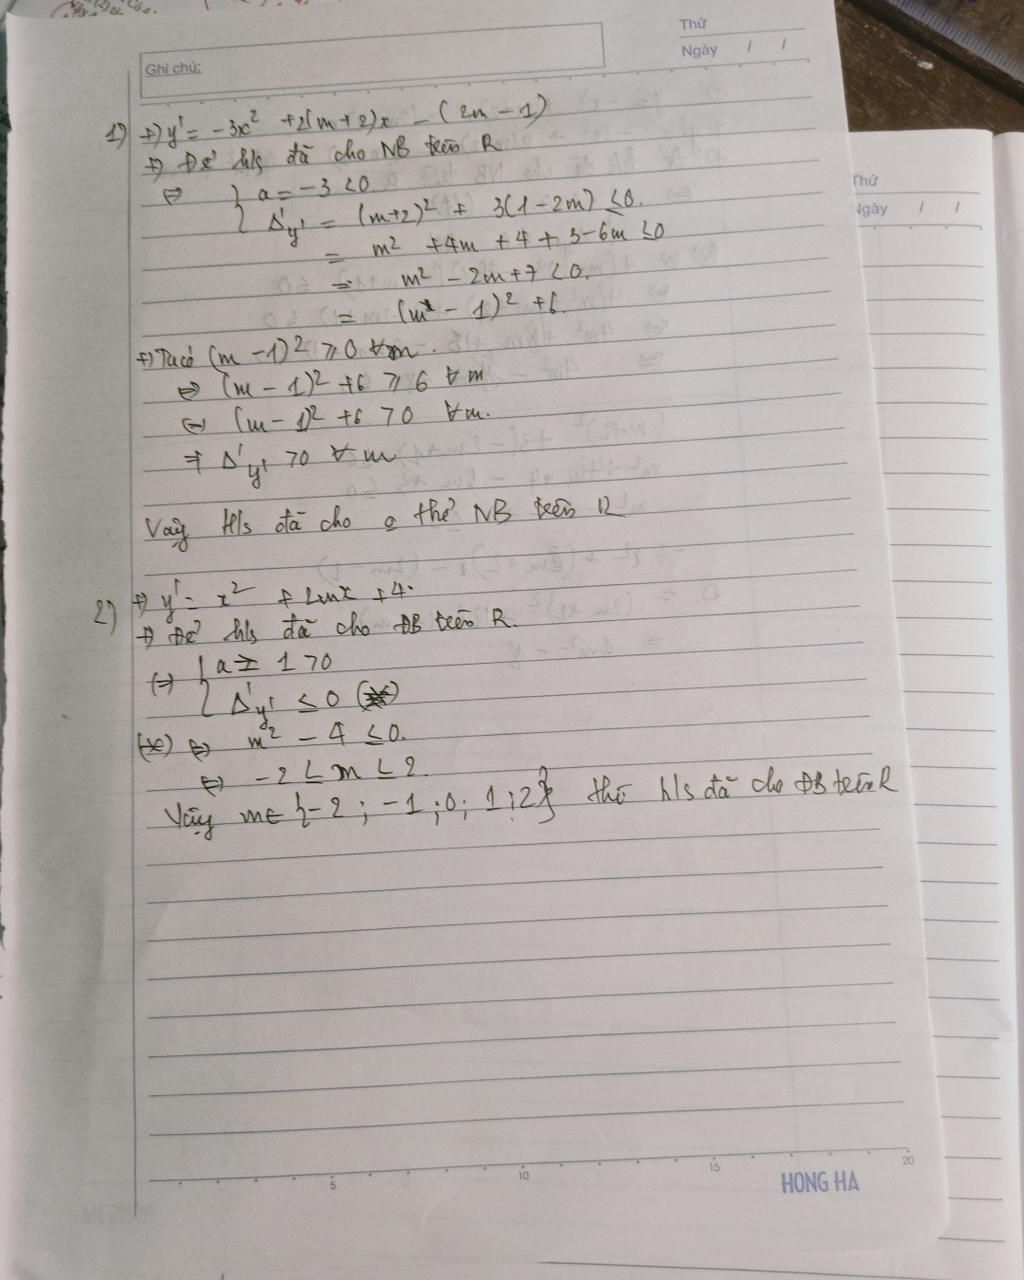 Thứ
Ngày / /
Ghi chú:
1) +) y' = -3x² + 2(m+2)x - (2m - 1)
+) Để h/s đã cho NB trên R
⇔ { a = -3 < 0
{ Δ'y' = (m+2)² + 3(1 - 2m) ≤ 0.
= m² + 4m + 4 + 3 - 6m ≤ 0
= m² - 2m + 7 < 0.
= (m - 1)² + 6.
+) Ta có (m - 1)² ≥ 0 ∀m.
⇔ (m - 1)² + 6 ≥ 6 ∀m
⇔ (m - 1)² + 6 > 0 ∀m.
⇒ Δ'y' > 0 ∀m
Vậy H/s đã cho thể NB trên R
2) +) y' = x² + 2mx + 4.
+) Để h/s đã cho ĐB trên R.
⇔ { a = 1 > 0
{ Δ'y' ≤ 0 (*)
(*) ⇔ m² - 4 ≤ 0.
⇔ -2 ≤ m ≤ 2.
Vậy m∈ {-2 ; -1 ; 0 ; 1 ; 2} thì h/s đã cho ĐB trên R
Thứ
Ngày / /
5 10 15 20
HONG HA